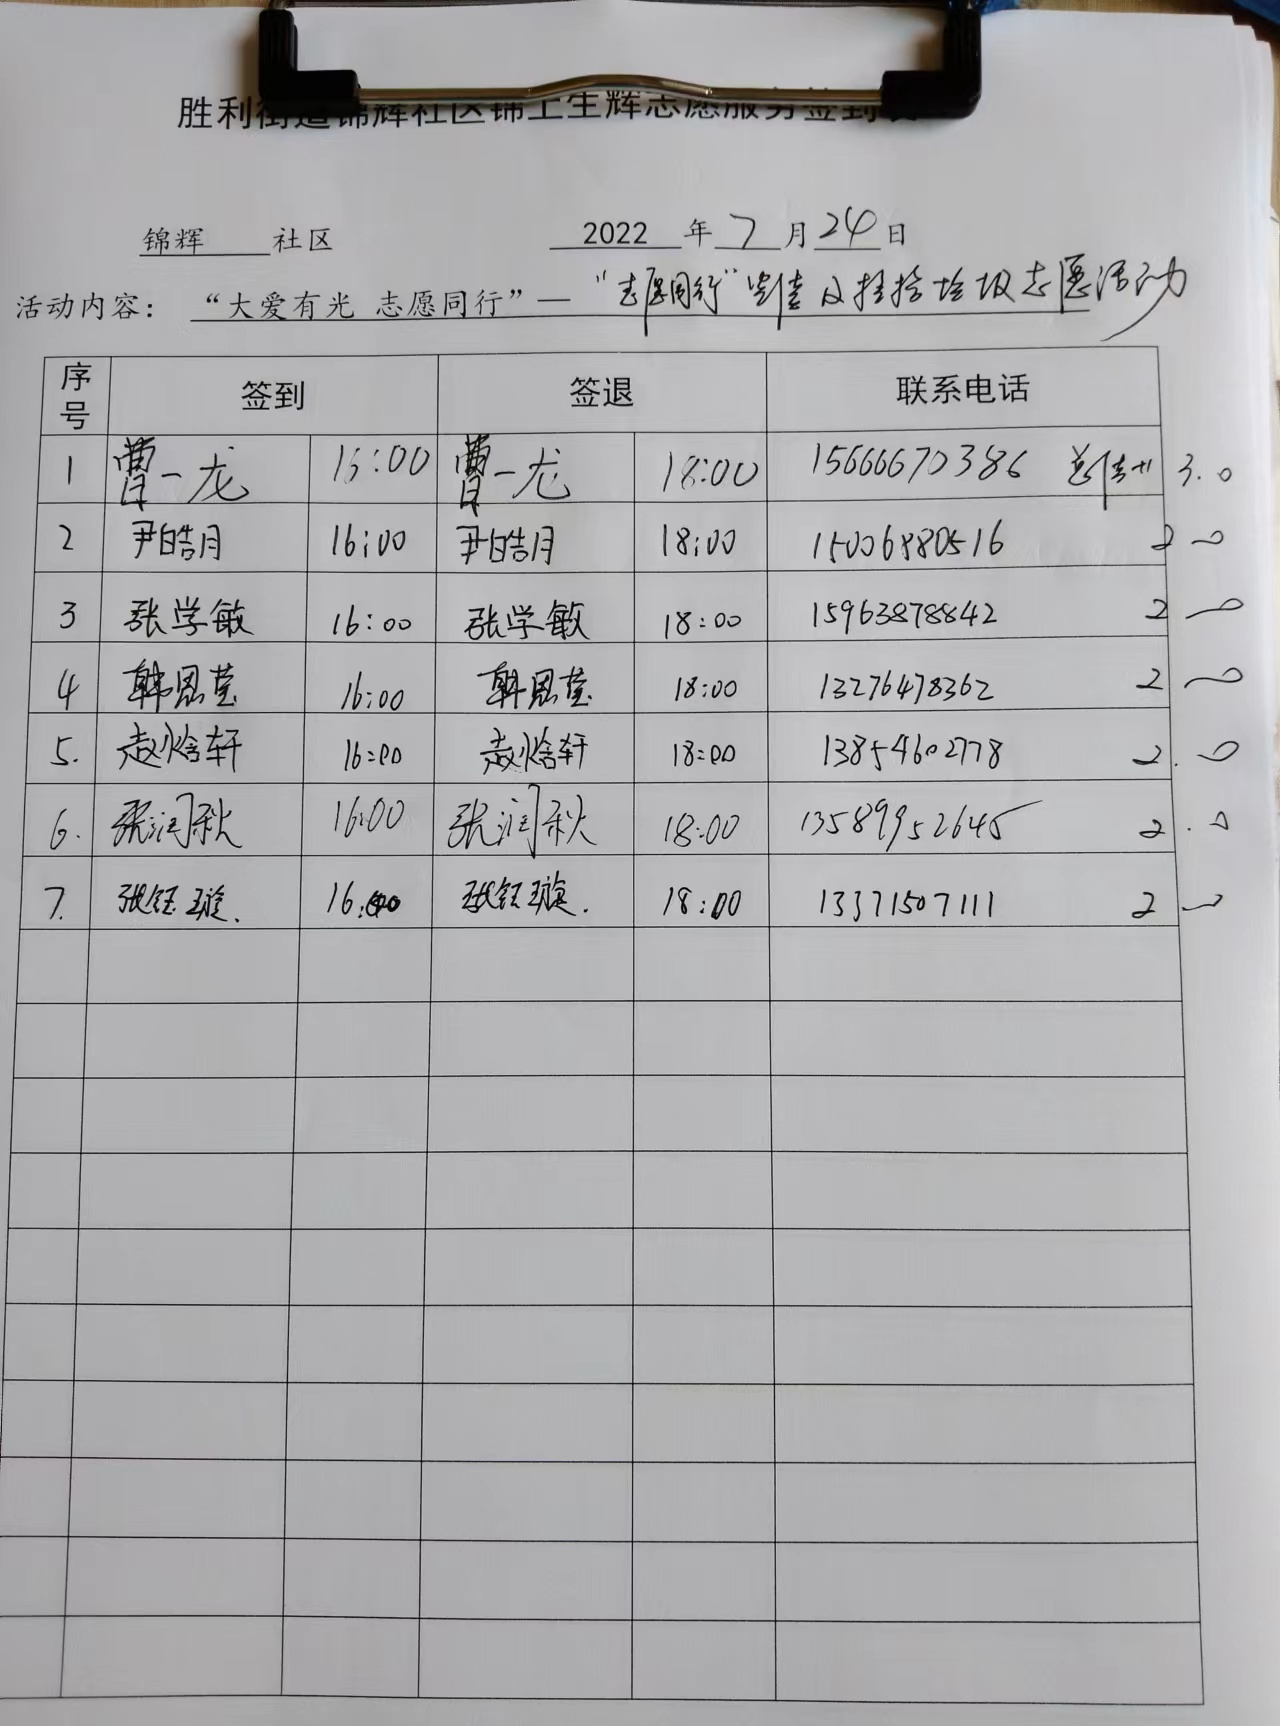 胜利街道锦辉社区锦上生辉志愿服务签到表
锦辉 社区 2022 年 7 月 24 日
活动内容： “大爱有光 志愿同行”— “志愿同行” 宣传及捡拾垃圾志愿活动
序号 签到 签退 联系电话
1 曹一龙 15:00 曹一龙 18:00 15666670386 3.0
2 尹皓月 16:00 尹皓月 18:00 15006880516 2.0
3 张学敏 16:00 张学敏 18:00 15963878842 2.0
4 韩恩莹 16:00 韩恩莹 18:00 13276478362 2.0
5. 赵焓轩 16:00 赵焓轩 18:00 13854602778 2.0
6. 张润秋 16:00 张润秋 18:00 13589952645 2.0
7. 张钰璇. 16:00 张钰璇. 18:00 13371507111 2.0